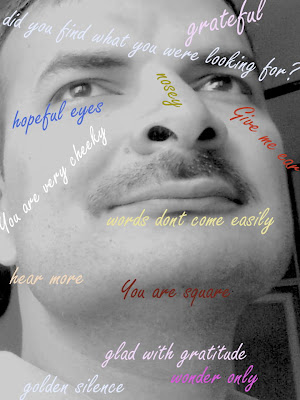 grateful
did you find what you were looking for?
nosey
hopeful eyes
Give me ear
You are very cheeky
words dont come easily
hear more
You are square
glad with gratitude
wonder only
golden silence